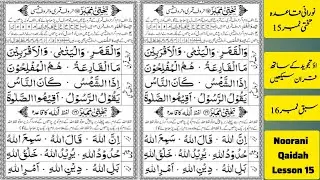 وَالْقَمَرِ وَالْيَتٰمٰى وَالْاَقْرَبِيْنَ
هُمُ الْمُفْلِحُوْنَ
اِذَا الشَّمْسُ كَانَ النَّاسُ
يَقُوْلُ الرَّسُوْلُ اَقِيْمُوا الصَّلٰوةَ
اِنَّ اللّٰهَ قَالَ اللّٰهُ سَمِعَ اللّٰهُ
حُدُوْدُ اللّٰهِ يُرِيْدُ اللّٰهُ خَلْقِ اللّٰهِ
بَلِ اللّٰهُ دِيْنِ اللّٰهِ اَمْرُ اللّٰهِ
وَالْقَمَرِ وَالْيَتٰمٰى وَالْاَقْرَبِيْنَ
هُمُ الْمُفْلِحُوْنَ
اِذَا الشَّمْسُ كَانَ النَّاسُ
يَقُوْلُ الرَّسُوْلُ اَقِيْمُوا الصَّلٰوةَ
اِنَّ اللّٰهَ قَالَ اللّٰهُ سَمِعَ اللّٰهُ
حُدُوْدُ اللّٰهِ يُرِيْدُ اللّٰهُ خَلْقِ اللّٰهِ
بَلِ اللّٰهُ دِيْنِ اللّٰهِ اَمْرُ اللّٰهِ
نورانی قاعدہ
تختی نمبر 15
آؤ تجوید کے ساتھ
قرآن سیکھیں
سبق نمبر 16
Noorani
Qaidah
Lesson 15